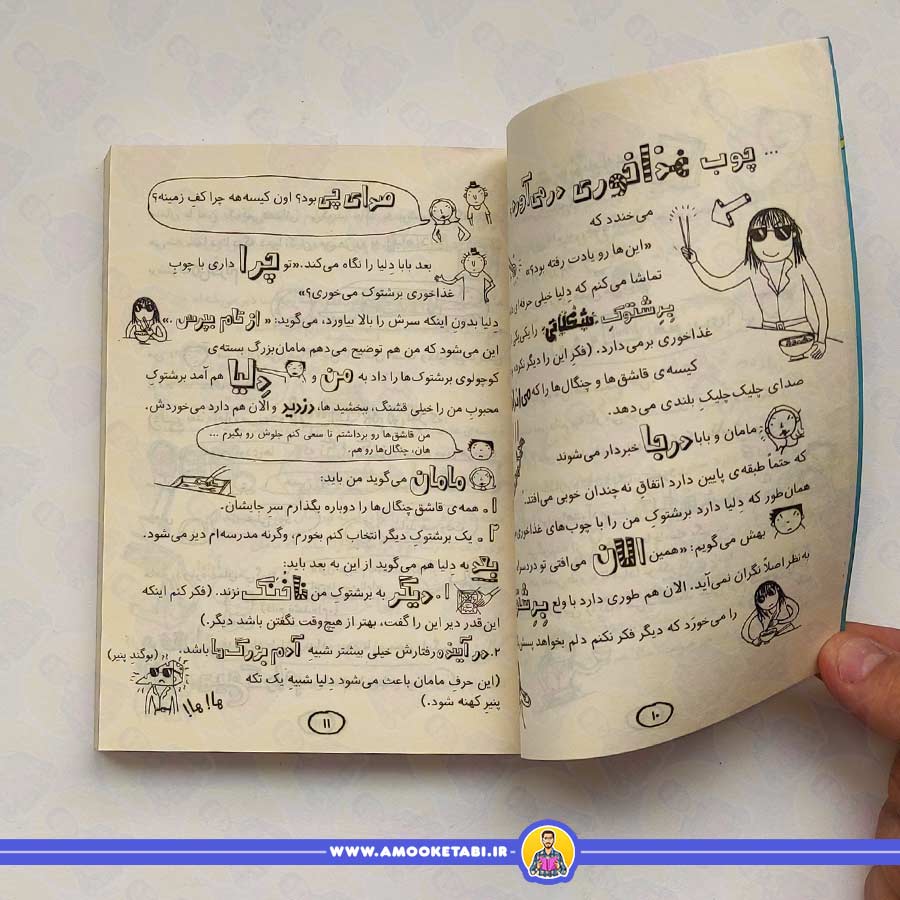 ... چوب غذاخوری درمی‌آورد
می‌خندد که
«این‌ها رو یادت رفته بود؟»
تماشا می‌کنم که دِلیا خیلی حرفه‌ای
برِشتوکِ شکلاتی را یکی یکی
غذاخوری برمی‌دارد. (فکر این را دیگر نکرده
کیسه‌ی قاشق‌ها و چنگال‌ها را که
صدای چلیک‌چلیکِ بلندی می‌دهد.
مامان و بابا درجا خبردار می‌شوند
که حتماً طبقه‌ی پایین دارد اتفاقِ نه چندان خوبی می‌افتد.
همان‌طور که دِلیا دارد برشتوکِ من را با چوب‌های غذاخوری
بهش می‌گویم: «همین الان می‌افتی تو دردسر
به نظر اصلاً نگران نمی‌آید. الان هم طوری دارد با ولع
را می‌خورَد که دیگر فکر نکنم دلم بخواهد
۱۰
صدای چی بود؟ اون کیسه‌هه چرا کفِ زمینه؟
بعد بابا دِلیا را نگاه می‌کند. «تو چرا داری با چوبِ
غذاخوری برشتوک می‌خوری؟»
دلیا بدون اینکه سرش را بالا بیاورد، می‌گوید: «از تام بپرس.»
این می‌شود که من هم توضیح می‌دهم مامان‌بزرگ بسته‌ی
کوچولوی برشتوک‌ها را داد به من و دِلیا هم آمد برشتوکِ
محبوبِ من را خیلی قشنگ، ببخشید ها، دزدید و الان هم دارد می‌خوردش.
من قاشق‌ها رو برداشتم تا سعی کنم جلوش رو بگیرم ...
هان، چنگال‌ها رو هم.
مامان می‌گوید من باید:
۱. همه‌ی قاشق چنگال‌ها را دوباره بگذارم سر جایشان.
۲. یک برشتوکِ دیگر انتخاب کنم بخورم، وگرنه مدرسه‌ام دیر می‌شود.
بعد به دِلیا هم می‌گوید از این به بعد باید:
۱. دیگر به برشتوکِ من ناخنک نزند. (فکر کنم اینکه
این‌قدر دیر این را گفت، بهتر از هیچ‌وقت نگفتن باشد دیگر.)
۲. در آینده رفتارش خیلی بیشتر شبیهِ آدم بزرگ‌ها باشد.
(بوگندِ پنیر)
(این حرفِ مامان باعث می‌شود دِلیا شبیهِ یک تکه
پنیرِ کهنه شود.)
ها! ها!
۱۱
WWW.AMOOKETABI.IR